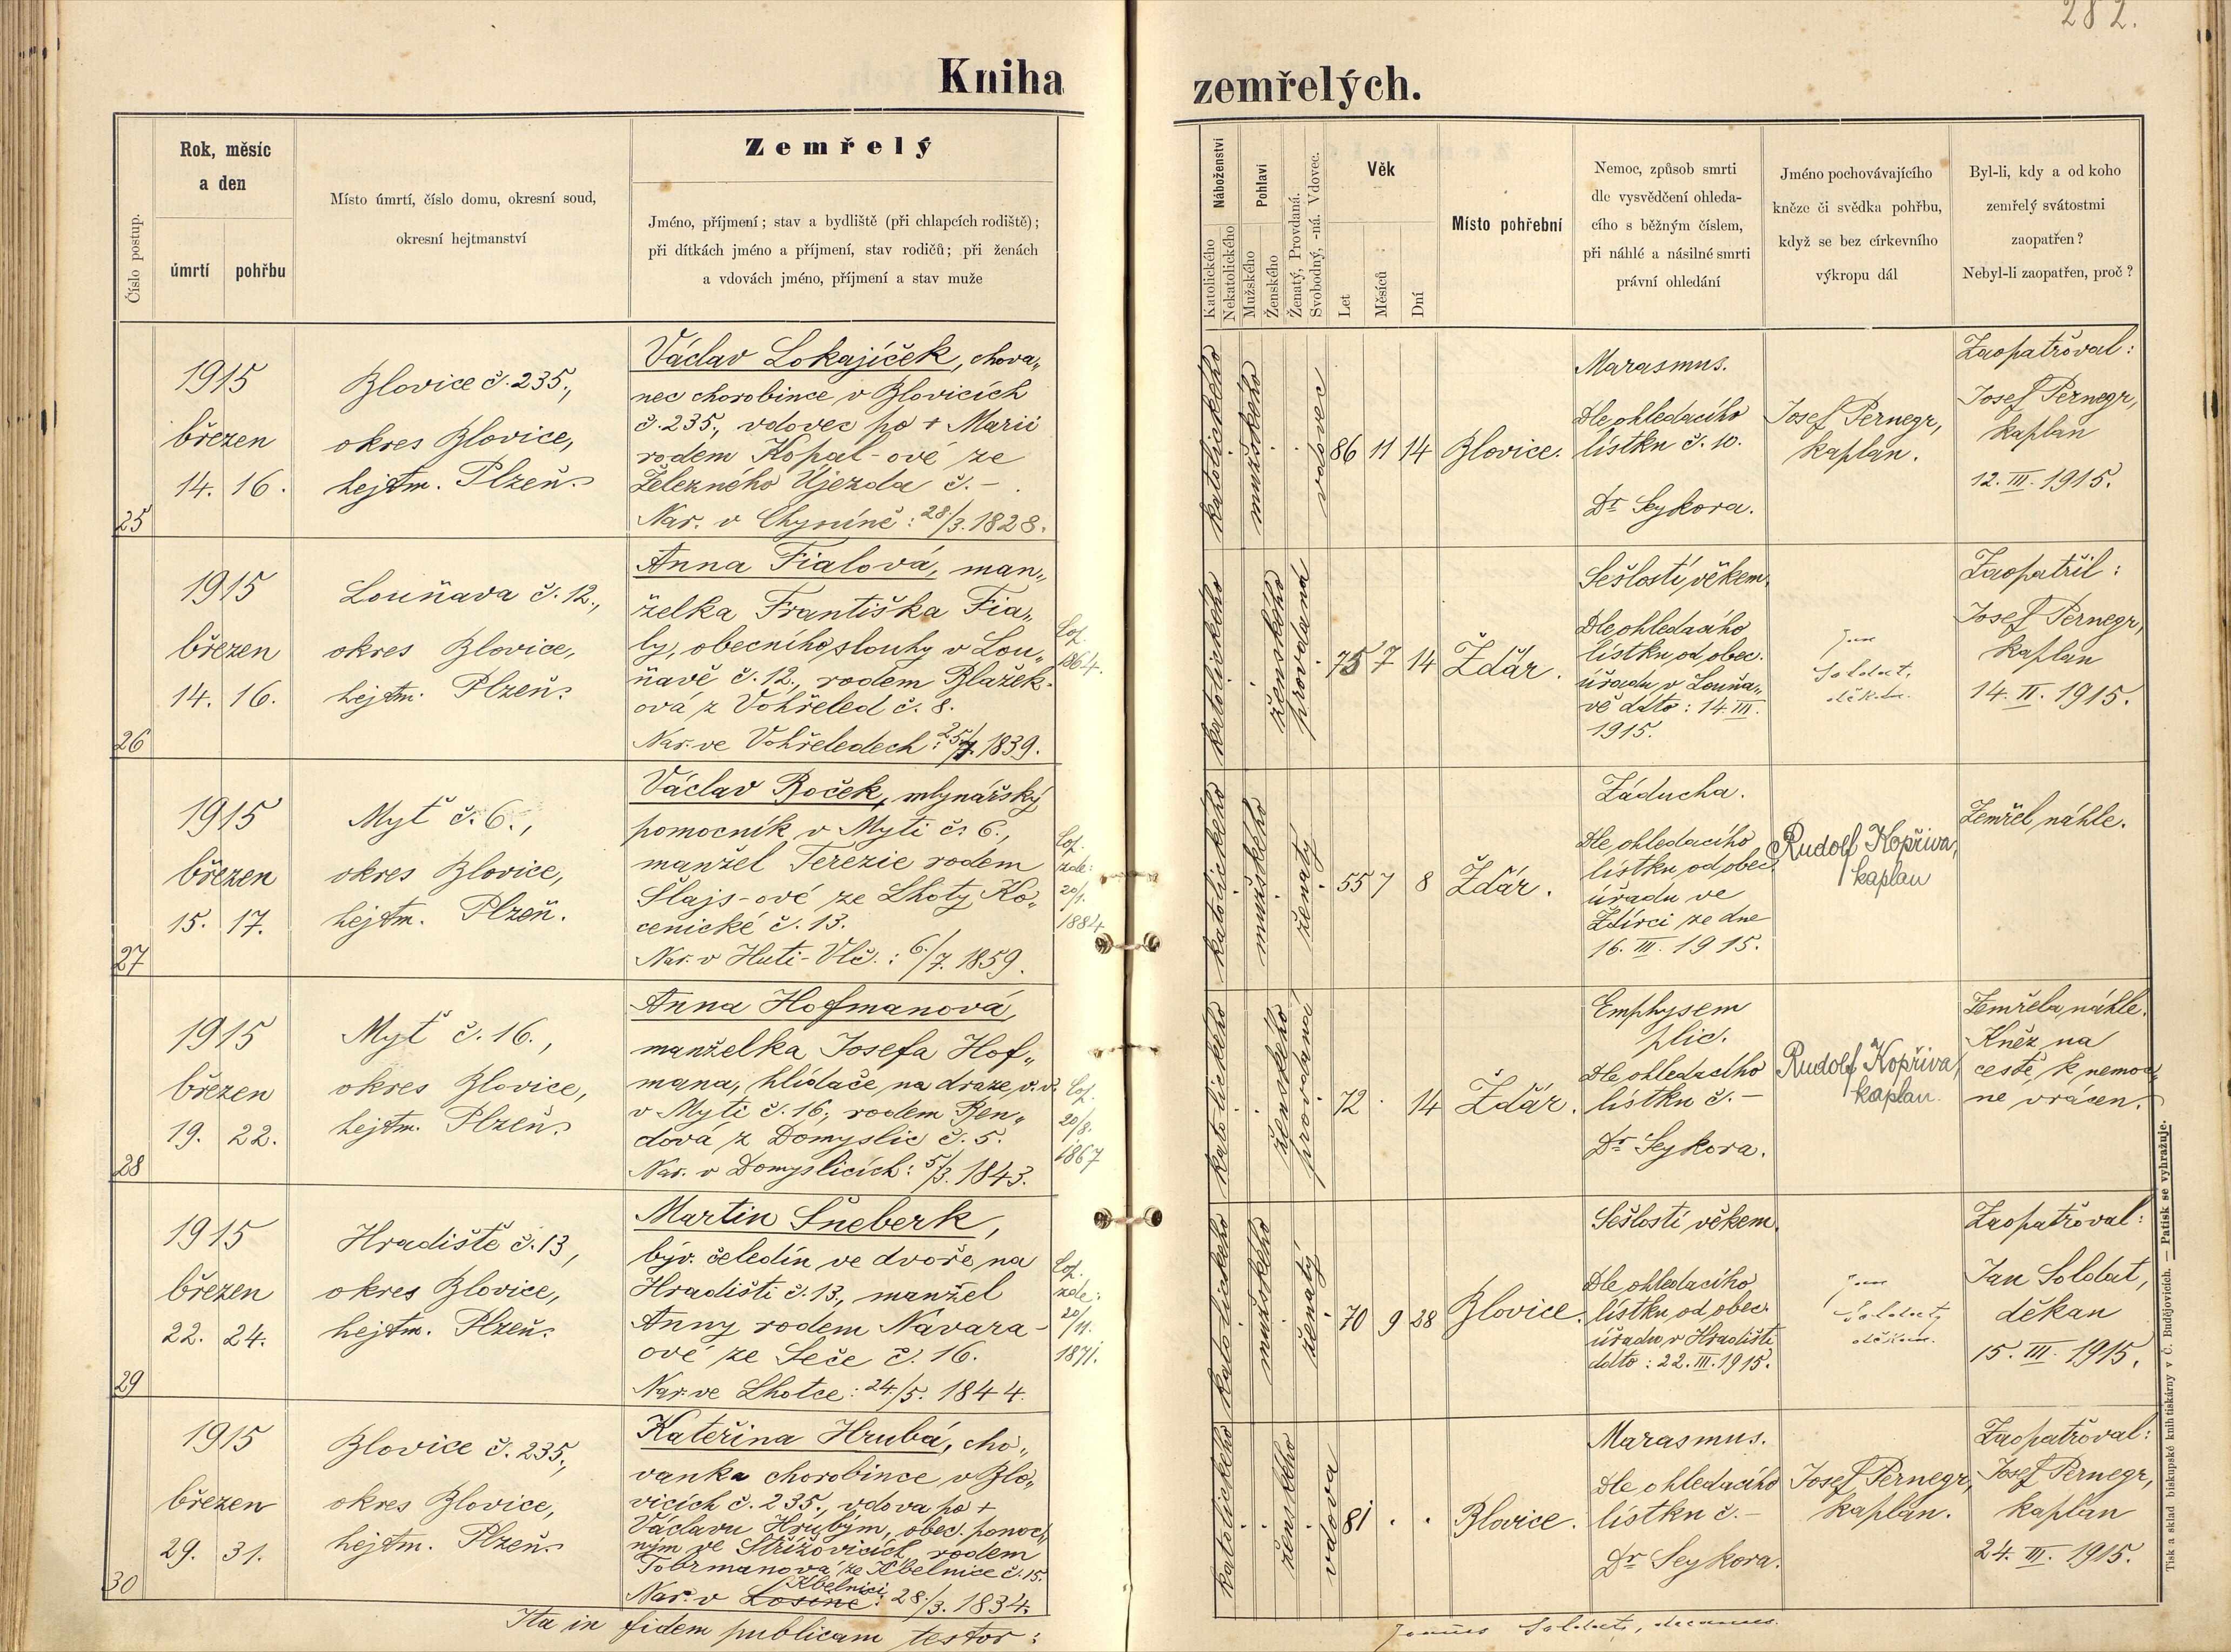 282.
Kniha zemřelých.
Číslo postup.
Rok, měsíc
a den
úmrtí
pohřbu
Místo úmrtí, číslo domu, okresní soud,
okresní hejtmanství
Zemřelý
Jméno, příjmení; stav a bydliště (při chlapcích rodiště);
při dítkách jméno a příjmení, stav rodičů; při ženách
a vdovách jméno, příjmení a stav muže
Náboženství
Katolického
Nekatolického
Pohlaví
Mužského
Ženského
Ženatý, Provdaná.
Svobodný, -ná. Vdovec.
Věk
Let
Měsíců
Dní
Místo pohřební
Nemoc, způsob smrti
dle vysvědčení ohleda-
cího s běžným číslem,
při náhlé a násilné smrti
právní ohledání
Jméno pochovávajícího
kněze či svědka pohřbu,
když se bez církevního
výkropu dál
Byl-li, kdy a od koho
zemřelý svátostmi
zaopatřen?
Nebyl-li zaopatřen, proč?
25
1915
březen
14. 16.
Blovice č. 235.,
okres Blovice,
hejtm. Plzeň.
Václav Lokajíček, chova„
nec chorobince v Blovicích
č. 235., vdovec po + Marii
rodem Kopal-ové ze
Železného Újezda č. -
Nar. v Chyníně: 28./3. 1828.
katolického
mužského
vdovec
86 11 14
Blovice.
Marasmus.
Dle ohledacího
lístku č. 10.
Dr Seykora.
Josef Pernegr,
kaplan.
Zaopatřoval:
Josef Pernegr,
kaplan
12. III. 1915.
26
1915
březen
14. 16.
Louňava č. 12.,
okres Blovice,
hejtm. Plzeň.
Anna Fialová, man„
želka Františka Fia„
ly, obecního slouhy v Lou„
ňavě č. 12., rodem Blažek-
ová z Vohřeled č. 8.
Nar. ve Vohřeledech: 25./7. 1839.
Cop.
1864.
katolického
ženského
provdaná
75 7 14
Žďár.
Sešlostí věkem.
Dle ohledacího
lístku od obec.
úřadu v Louňa„
vě dato: 14. III.
1915.
Jan
Soldat,
děkan.
Zaopatřil:
Josef Pernegr,
kaplan
14. II. 1915.
27
1915
březen
15. 17.
Myť č. 6.,
okres Blovice,
hejtm. Plzeň.
Václav Roček, mlynářský
pomocník v Myti č. 6.,
manžel Terezie rodem
Šlajs-ové ze Lhoty Ko„
cenické č. 13.
Nar. v Huti-Vlč.: 6./7. 1859.
Cop.
zde:
20/1.
1884
katolického
mužského
ženatý
55 7 8
Žďár.
Záducha.
Dle ohledacího
lístku od obec.
úřadu ve
Ždírci ze dne
16. III. 1915.
Rudolf Kopřiva,
kaplan
Zemřel náhle.
28
1915
březen
19. 22.
Myť č. 16.,
okres Blovice,
hejtm. Plzeň.
Anna Hofmanová,
manželka Josefa Hof„
mana, hlídače na draze, v. v.
v Myti č. 16., rodem Ben„
dová z Domyslic č. 5.
Nar. v Domyslicích: 5/3. 1843.
Cop.
20/8.
1867
katolického
ženského
provdaná
72 . 14
Žďár.
Emphysem
plic.
Dle ohledacího
lístku č. -
Dr Seykora.
Rudolf Kopřiva,
kaplan.
Zemřela náhle.
Kněz na
cestě k nemoc„
né vrácen.
29
1915
březen
22. 24.
Hradiště č. 13,
okres Blovice,
hejtm. Plzeň.
Martin Šneberk,
býv. čeledín ve dvoře na
Hradišti č. 13., manžel
Anny rodem Návara-
ové ze Seče č. 16.
Nar. ve Lhotce: 24./5. 1844.
Cop.
zde:
20/11.
1871.
katolického
mužského
ženatý
70 9 28
Blovice.
Sešlostí věkem.
Dle ohledacího
lístku od obec.
úřadu v Hradišti
dato: 22. III. 1915.
Jan
Soldat,
děkan.
Zaopatřoval:
Jan Soldat,
děkan
15. III. 1915.
30
1915
březen
29. 31.
Blovice č. 235.,
okres Blovice,
hejtm. Plzeň.
Kateřina Hrubá, cho„
vanka chorobince v Blo„
vicích č. 235., vdova po +
Václavu Hrubým, obec. ponoc„
ným ve Střížovicích, rodem
Tobrmanová ze Kbelnice č. 15.
Kbelnici
Nar. v Losině: 28./3. 1834.
katolického
ženského
vdova
81 . .
Blovice.
Marasmus.
Dle ohledacího
lístku č. -
Dr Seykora.
Josef Pernegr,
kaplan.
Zaopatřoval:
Josef Pernegr,
kaplan
24. III. 1915.
Ita in fidem publicam testor:
Soldat, decanus.
Tisk a sklad biskupské knihtiskárny v Č. Budějovicích. — Patisk se vyhražuje.